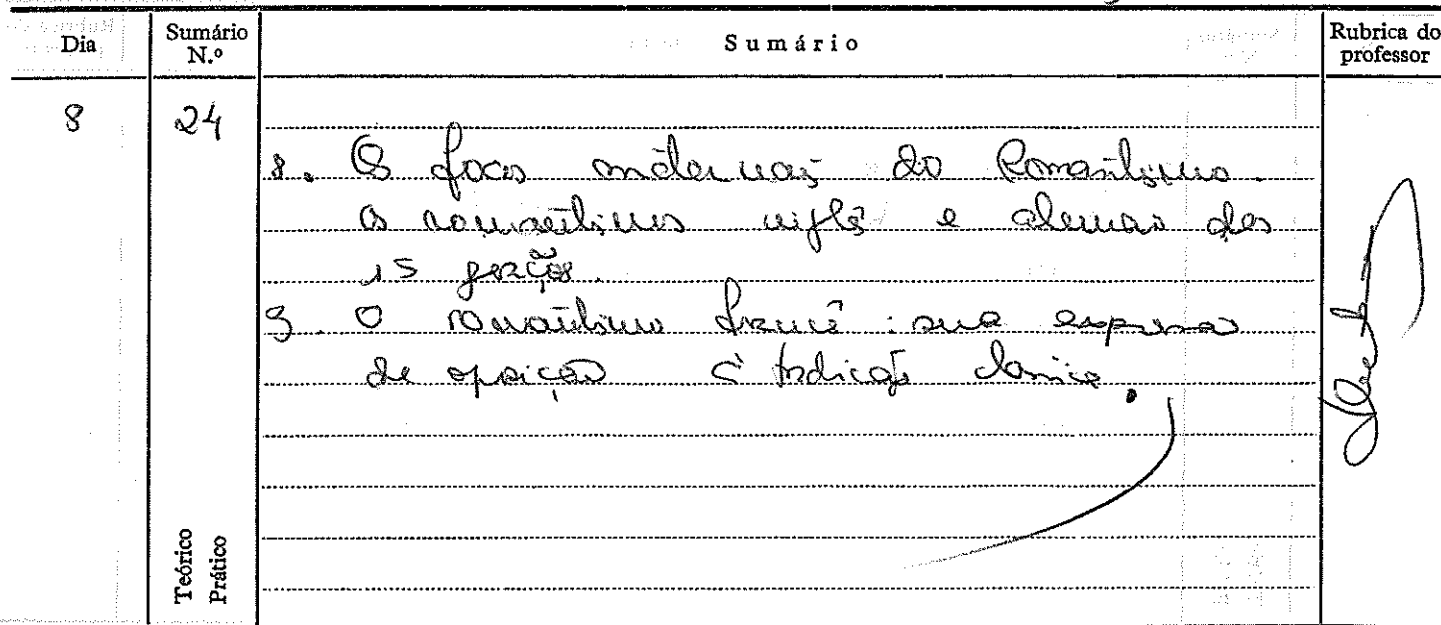 Dia
Sumário N.º
Sumário
Rubrica do professor
8
24
8. Os focos do Romantismo.
Os romantismos inglês e alemão das
1as gerações.
9. O romantismo francês: sua expressão
de oposição à tradição clássica.
Teórico
Prático